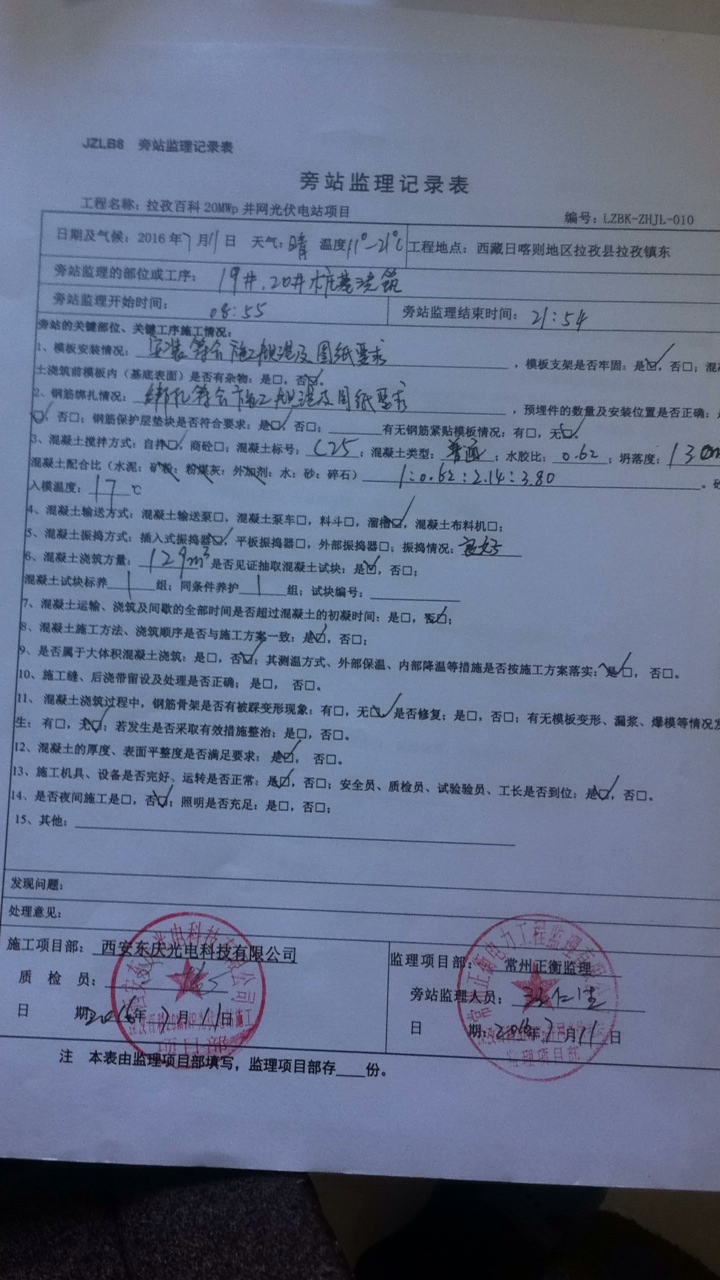 JZLB8 旁站监理记录表
旁站监理记录表
工程名称：拉孜百科20MWp并网光伏电站项目
编号：LZBK-ZHJL-010
日期及气候：2016年7月11日 天气：晴 温度11°—21℃
工程地点：西藏日喀则地区拉孜县拉孜镇东
旁站监理的部位或工序：19#、20#桩基浇筑
旁站监理开始时间：08:55
旁站监理结束时间：21:54
旁站的关键部位、关键工序施工情况：
1、模板安装情况：安装符合施工规范及图纸要求，模板支架是否牢固：是☑，否□；混
土浇筑前模板内（基底表面）是否有杂物：是□，否☑。
2、钢筋绑扎情况：绑扎符合施工规范及图纸要求，预埋件的数量及安装位置是否正确：
☑，否□；钢筋保护层垫块是否符合要求：是☑，否□；有无钢筋紧贴模板情况：有□，无☑。
3、混凝土搅拌方式：自拌☑，商砼□；混凝土标号：C25；混凝土类型：普通；水胶比：0.62；坍落度：130m
混凝土配合比（水泥：矿粉：粉煤灰：外加剂：水：砂：碎石）1:0.62:2.14:3.80。
入模温度：17℃
4、混凝土输送方式：混凝土输送泵□，混凝土泵车□，料斗□，溜槽☑，混凝土布料机□；
5、混凝土振捣方式：插入式振捣器☑，平板振捣器□，外部振捣器□；振捣情况：良好
6、混凝土浇筑方量：129m³是否见证抽取混凝土试块：是☑，否□；
混凝土试块标养1组；同条件养护1组；试块编号：
7、混凝土运输、浇筑及间歇的全部时间是否超过混凝土的初凝时间：是□，否☑；
8、混凝土施工方法、浇筑顺序是否与施工方案一致：是☑，否□；
9、是否属于大体积混凝土浇筑：是□，否☑；其测温方式、外部保温、内部降温等措施是否按施工方案落实：是☑，否□。
10、施工缝、后浇带留设及处理是否正确：是□，否□。
11、混凝土浇筑过程中，钢筋骨架是否有被踩变形现象：有□，无☑，是否修复：是□，否□；有无模板变形、漏浆、爆模等情况发
生：有□，无☑；若发生是否采取有效措施整治：是□，否□。
12、混凝土的厚度、表面平整度是否满足要求：是☑，否□。
13、施工机具、设备是否完好、运转是否正常：是☑，否□；安全员、质检员、试验验员、工长是否到位：是☑，否□。
14、是否夜间施工是□，否☑；照明是否充足：是□，否□；
15、其他：
发现问题：
处理意见：
施工项目部：西安东庆光电科技有限公司
监理项目部：常州正衡监理
质检员：
旁站监理人员：
日期：2016年7月11日
日期：2016年7月11日
项目部
监理项目部
注 本表由监理项目部填写，监理项目部存____份。